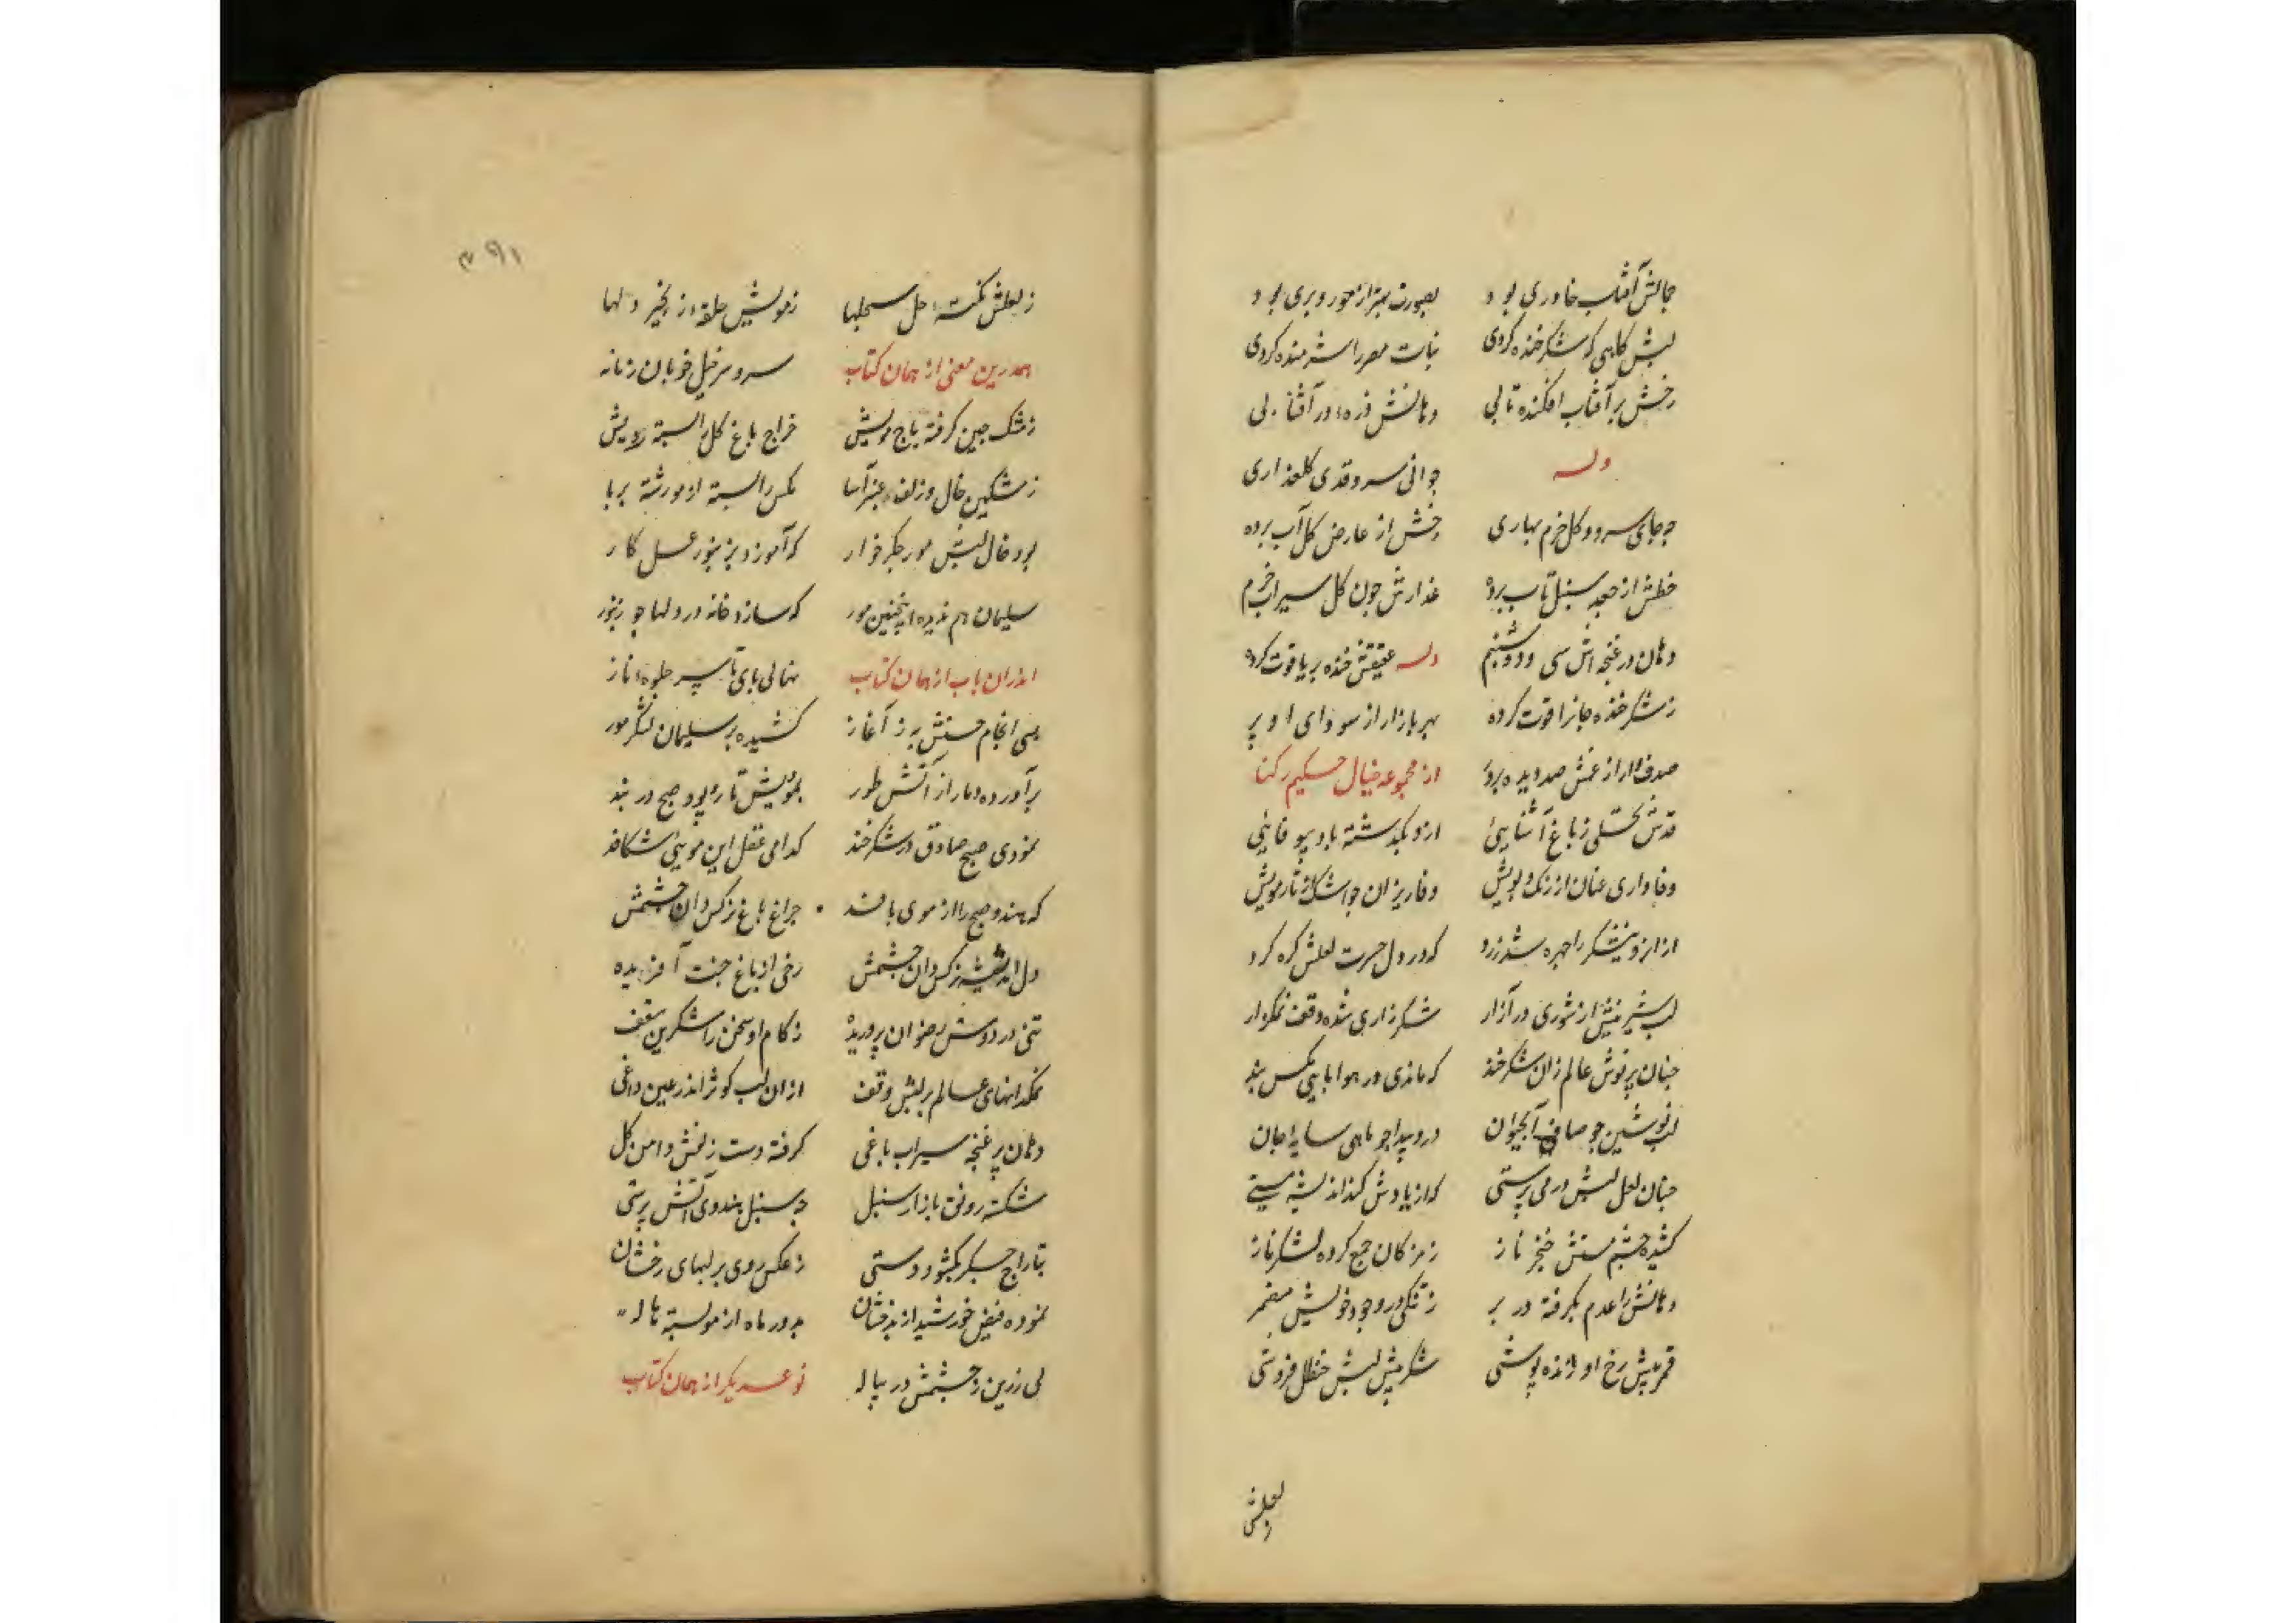 جمالش آفتاب خاوری بود بصورت بهتر از حور و پری بود
لبش کاهی که شکر خنده کردی نبات مصر را شرمنده کردی
رخش بر آفتاب افکنده تابی دهانش ذره در آفتابی
وله جوانی سرو قدی کلعذاری
چه جای سرو و کل خرم بهاری رخش از عارض کل آب برده
خطش از جعد سنبل تاب برده عذارش چون کل سیراب خرم
دهان در غنچه اش سی و دو شبنم وله عقیقش خنده بر یاقوت کرده
ز شکر خنده جانرا قوت کرده بهر بازار از سودای او پر
صدف وار از غمش صد دیده پر در از مجموعه خیال حکیم رکنا
قدش نخلی ز باغ آشنایی ازو بگذشته باد بیوفایی
وفا داری عنان از رنک و بویش وفا ریزان چو اشک از تار مویش
از انرو نیشکر را چهره شد زرد که در دل حسرت لعلش کره کرد
لب شیرینش از شوری در آزار شکرزاری شده وقف نمکزار
چنان پر نوش عالم زان شکر خند که ماندی در هوا پای مکس بند
لب نوشین چو صاف آبحیوان درو پیدا چو ماهی سایه جان
چنان لعل لبش در می پرستی که از یادش کند اندیشه مستی
کشیده چشم مستش خنجر ناز ز مژکان جمع کرده لشکر ناز
دهانش را عدم بکرفته در بر ز تنکی در وجود خویش مضمر
قمر پیش رخ او ژنده پوشی شکر پیش لبش حنظل فروشی
ز لعلش
۳۹۱
ز لعلش نکته حل مشکلها ز مویش حلقه زنجیر دلها
همدرین معنی از همان کتاب سر و سر خیل خوبان زمانه
ز مشک چین کرفته باج مویش خراج باغ کل را بسته رویش
ز مشکین خال و زلف عنبر آسا مکس را بسته او مو رشته بر پا
بود خال لبش مور جکر خوار که آموزد بزنبور عسل کار
سلیمان هم ندیده اینچنین مور که سازد خانه در دلها چو زنبور
اندران باب از همان کتاب نهالی پای تا سر جلوه ناز
بسی انجام حسنش به ز آغاز کشیده بر سلیمان لشکر مور
برآورده دمار از آتش طور بمویش تار و پود صبح در بند
نمودی صبح صادق در شکر خند کدامی عقل این مویی شکافد
که هندو صبح را از موی بافد چراغ باغ نرکس دان چشمش
دل اندیشه نرکس دان چشمش رخی از باغ جنت آفریده
تنی در دوش رضوان پروریده ز کام او سخن را شکرین سقف
نمکدانهای عالم بر لبش وقف از ان لب کوثر اندر عین داغی
دهان پر غنچه سیراب باغی کرفته دست زلفش دامن کل
شکسته رونق بازار سنبل چه سنبل هندوی آتش پرستی
بتاراج جکر بکشود دستی ز عکس روی بر لبهای رخشان
نموده فیض خورشید از بدخشان بدور ماه از مو بسته هاله
لی رزین ز چشمش در پیاله نوع دیکر از همان کتاب